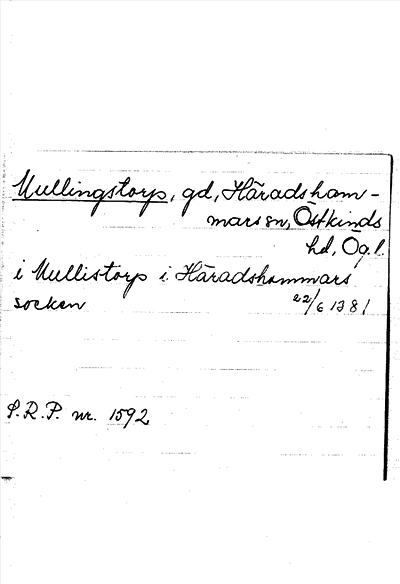 Mullingstorp, gd, Häradsham-
mars sn, Östkinds
hd, Ög. l.
i Mullistorp i Häradshammars
socken 22/6 1381
S.R.P. nr. 1592